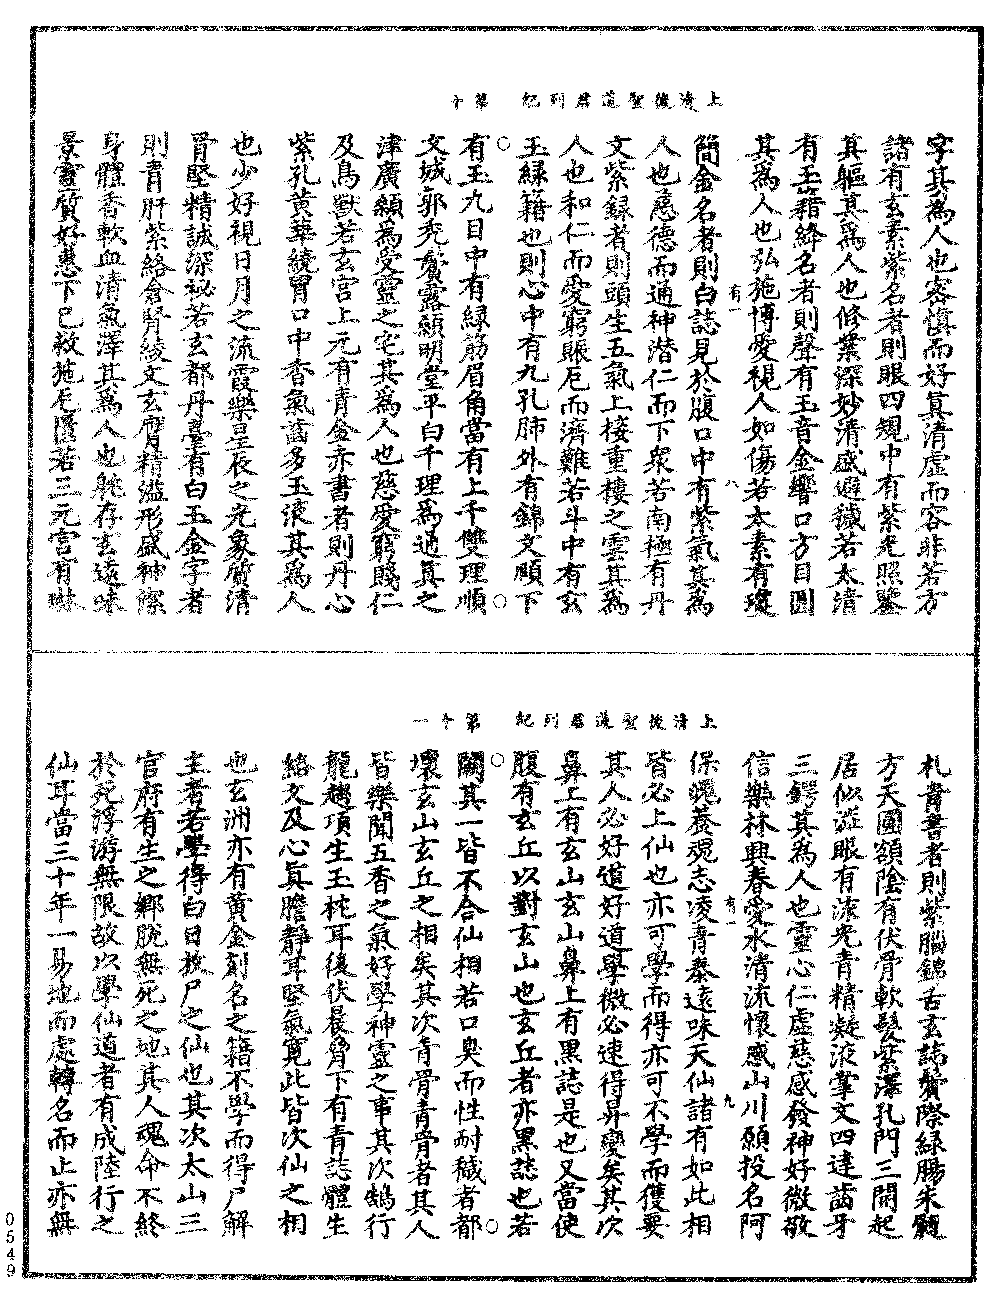 上清後聖道君列紀　第十
字其為人也容慎而好真清虛而容非若方
諸有玄素紫名者則眼四規中有紫光照鑒
其軀其為人也修業深妙清感避穢若太清
有玉籍絳名者則聲有玉音金響口方目圓
其為人也弘施博愛視人如傷若太素有瓊
有一　八
簡金名者則白誌見於腹口中有紫氣其為
人也急德而通神潛仁而下眾若南極有丹
文紫録者則頭生五氣上接重樓之雲其為
人也和仁而愛窮賑厄而濟難若斗中有玄
玉緑籍也則心中有九孔肺外有錦文頤下
有玉九目中有緑筋眉角當有上千雙理順
文城郭禿鬢露額明堂平白千理為通真之
津廣額為受靈之宅其為人也慈愛窮賤仁
及鳥獸若玄宫上元有青金赤書者則丹心
紫孔黃華繞胃口中香氣齒多玉液其為人
也少好視日月之流霞樂星辰之光象質清
骨堅精誠深祕若玄都丹臺有白玉金字者
則青肝紫絡倉腎綾文玄膺精溢形盛神際
身體香軟血清氣澤其為人也躭存玄遠味
景靈質好慧下已救施厄匱若三元宫有琳
上清後聖道君列紀　第十一
札青書者則紫腦錦舌玄誌鬢際緑腸朱髓
方天圓額陰有伏骨軟髮紫澤孔門三開起
居似澁眼有流光青精凝液掌文四達齒牙
三鍔其為人也靈心仁虛慈感發神好微敬
信樂林興春愛水清流懷感山川願投名阿
有一　九
保魂養魂志凌青泰遠味天仙諸有如此相
皆必上仙也亦可學而得亦可不學而獲要
其人必好道好道學微必速得昇變矣其次
鼻上有玄山玄山鼻上有黑誌是也又當使
腹有玄丘以對玄山也玄丘者亦黑誌也若
闕其一皆不合仙相若口臭而性耐穢者都
壞玄山玄丘之相矣其次青骨青骨者其人
皆樂聞五香之氣好學神靈之事其次鵠行
龍趨項生玉枕耳後伏晨脅下有青誌體生
絡文及心真膽靜耳堅氣寬此皆次仙之相
也玄洲亦有黃金刻名之籍不學而得尸解
主者若學得白日救尸之仙也其次太山三
官府有生之鄉脱無死之地其人魂命不終
於死浮游無限故以學仙道者有成陸行之
仙耳當三十年一易地而處轉名而止亦無
0549